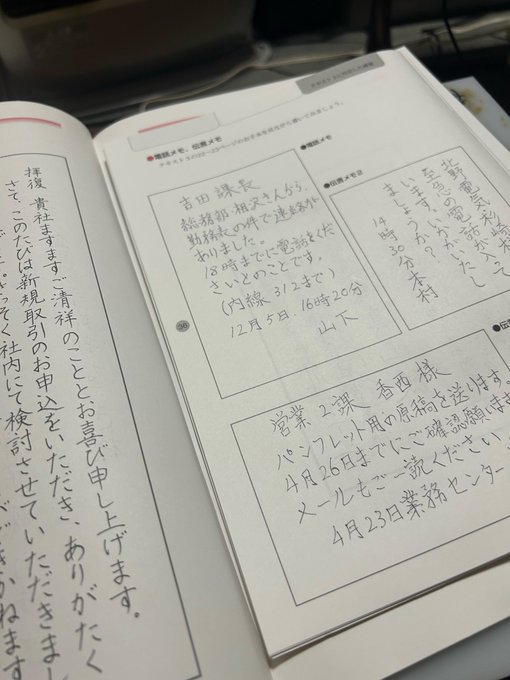 ●電話メモ、伝言メモ
●電話メモ
吉田課長
総務部・相沢さんから、
勤務表の件で連絡が
ありました。
18時までに電話をくだ
さいとのことです。
(内線312まで)
12月5日・16時20分
山下
●伝言メモ2
至急の電話が入って
いますが、いかがいたし
ましょうか?
14時30分木村
36
営業2課 香西様
パンフレット用の原稿を送ります。
4月26日までにご確認願いま
メールもご一読ください。
4月23日業務センター
拝復 貴社ますますご清祥のこととお喜び申し上げます。
さて、このたびは新規取引のお申込をいただき、ありがたく
そく社内にて検討させていただきまし
かねます